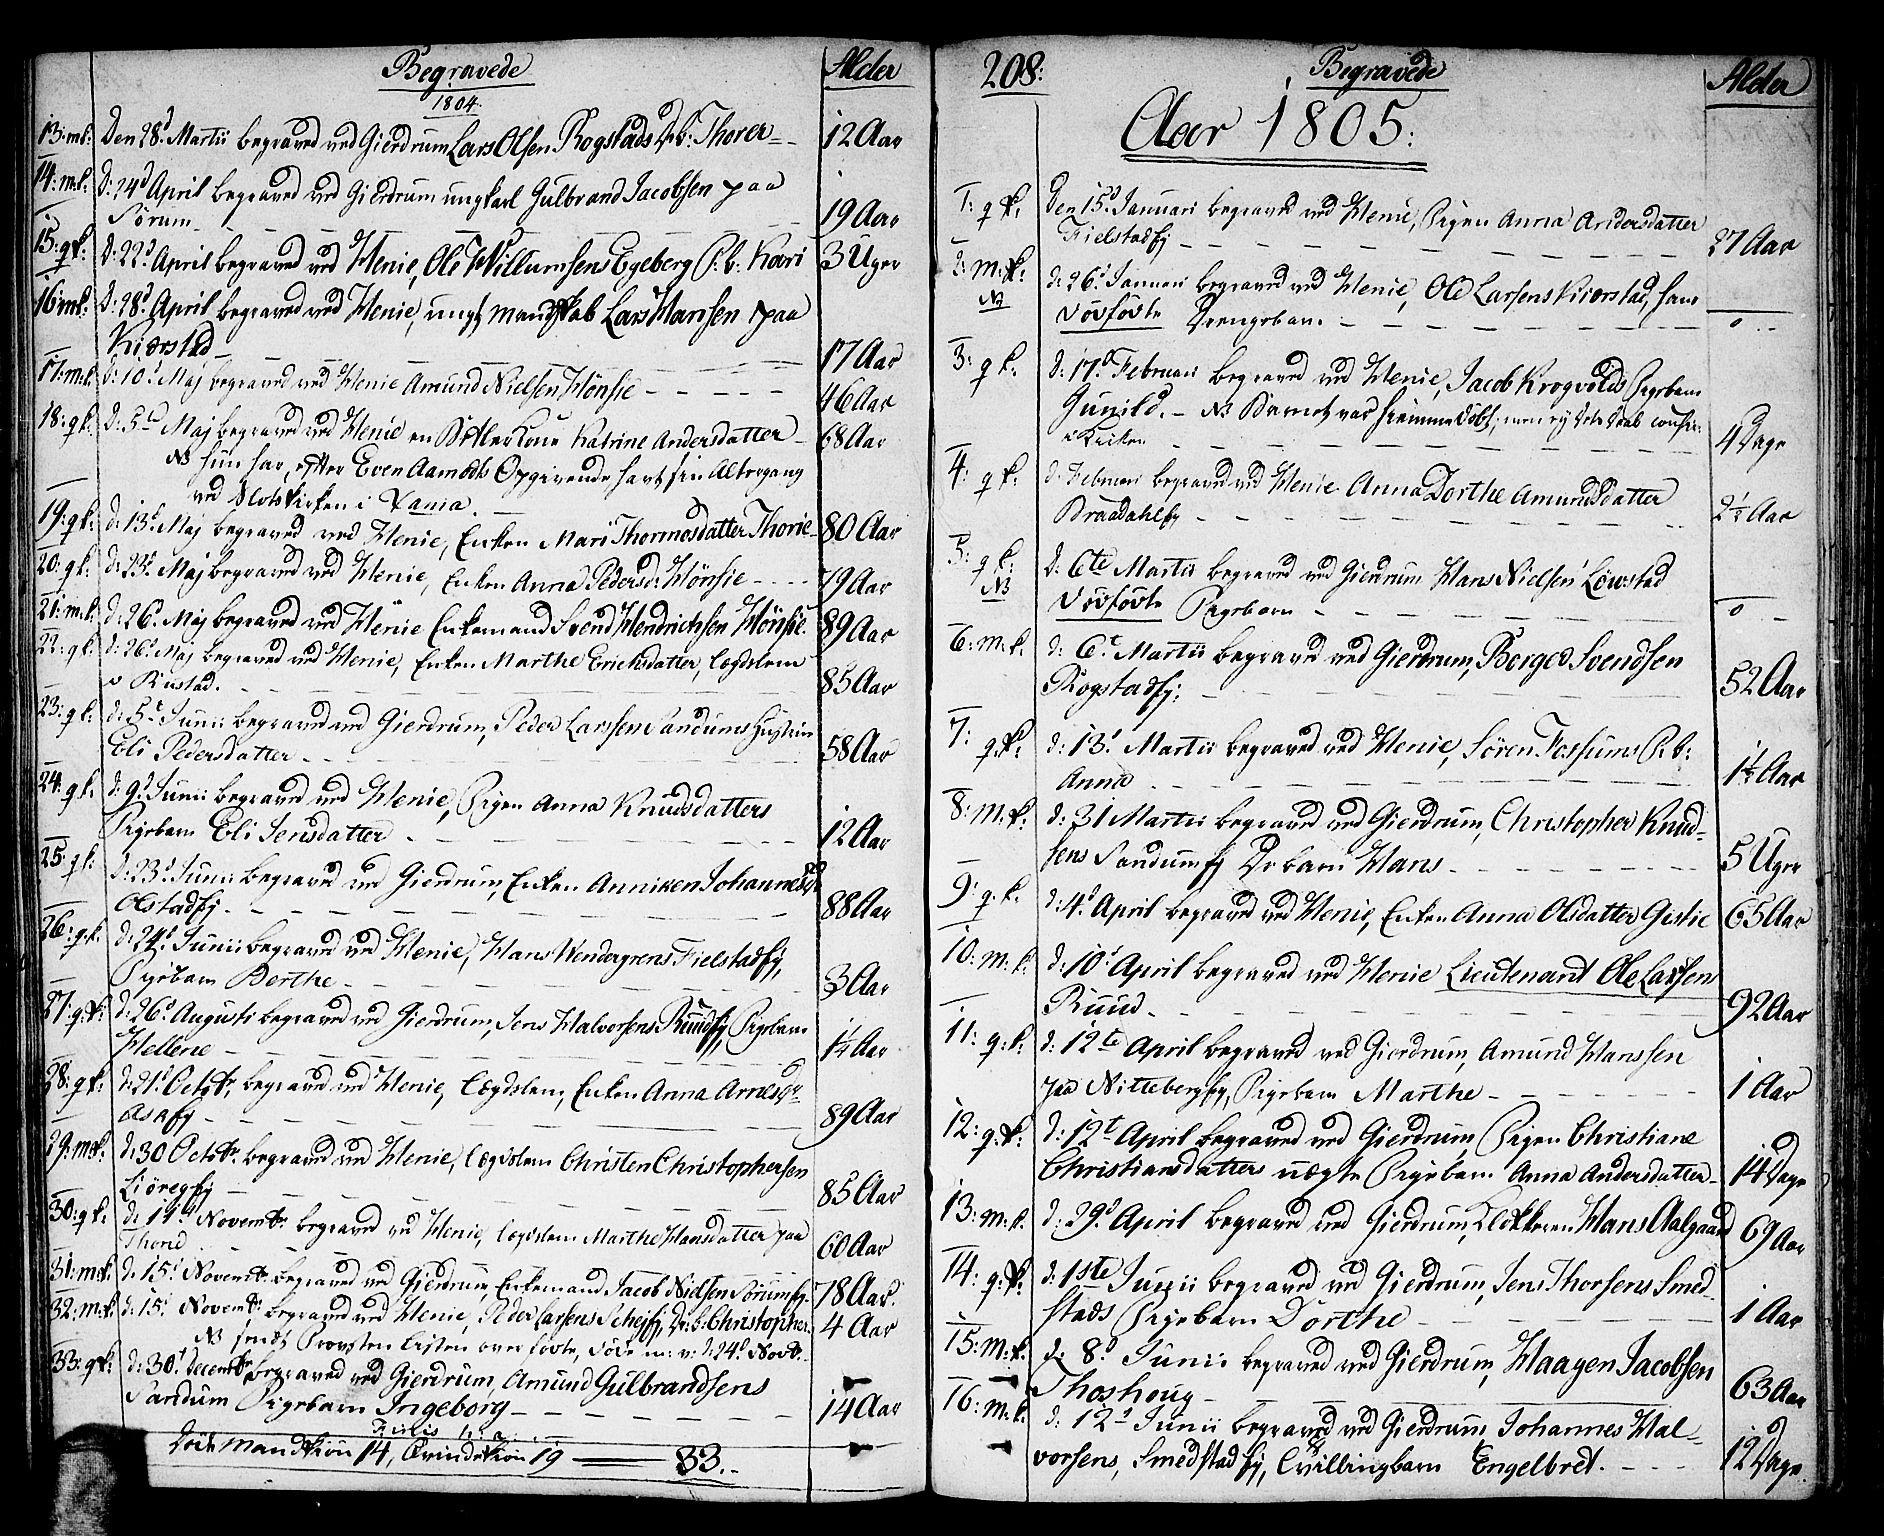 Begravede
Alder
1804.
13: mk: Den 28d Martii begraved ved Gierdrum Lars Olsen Rogstads Dr: b: Thorer 12 Aar
14: m.k: d: 24d April begraved ved Gierdrum ungkarl Gulbrand Jacobsen paa
Sørum 19 Aar
15: qk: d: 22d April begraved ved Henie, Ole Willumsens Egeberg P: b: Kari 3 Uger
16: mk: d: 28d April begraved ved Henie, ungt mandskab Lars Hansen paa
Kiørstad 17 Aar
17: m.k: d: 10d Maj begraved ved Henie Amund Nielsen Hønsie 46 Aar
18: qk: d: 5te Maj begraved ved Henie en Betler Kone Katrine Andersdatter 68 Aar
NB hun har, efter Even Aamodts Opgivende havt sin Altergang
ved Slotskirken i
19: qk: d: 13d Maj begraved ved Henie, Enken Mari Thormosdatter Thorie 80 Aar
20: qk: d: 23d Maj begraved ved Henie, Enken Anna Pedersd: Hønsie 79 Aar
21: m.k: d: 26d Maj begraved ved Henie Enkemand Svend Hendrichsen Hønsie 89 Aar
22: qk: d: 26d Maj begraved ved Henie, Enken Marthe Erichsdatter, Lægdslem
v Rustad. 85 Aar
23: qk: d: 5t Junii begraved ved Gierdrum, Peder Larssen Sandums Hustrue
Eli Pedersdatter 58 Aar
24: qk: d: 9d Junii begraved ved Henie, Pigen Anna Knudsdatters
Pigebarn Eli Jensdatter 12 Aar
25: qk: d: 23d Junii begraved ved Gierdrum, Enken Anniken Johannesdr
Olstadej. 88 Aar
26: q.k: d: 24d Junii begraved ved Henie, Hans Wendergrens Fielstadej,
Pigebarn Berthe 3 Aar
27: q:k: d: 26d Augusti begraved ved Gierdrum, Jens Halvorsens Ruudej, Pigebarn
Hellene 1¼ Aar
28: qk: d: 21d Octobr, begraved ved Henie, Lægdslem, Enken Anna Arnesdr
Askej 89 Aar
29: mk: d: 30 Octobr. begraved ved Henie, Lægdslem Christen Christophersen
Liøregej 85 Aar
30: qk: d: 14d Novembr. begraved ved Henie, Lægdslem Marthe Hansdatter paa
Thorie 60 Aar
31: mk: d: 15d Novembr. begraved ved Gierdrum, Enkemand Jacob Nielsen Sørumej. 78 Aar.
32: m.k: d: 15d Novembr: begraved ved Henie, Peder Larsens Schejej, Dr: b: Christopher. 4 Aar
NB sendt Provsten Listen over fødte, døde m: v: d: 24d Novbr.
33: qk: d: 30t Decembr. begraved ved Gierdrum, Amund Gulbrandsens
Sandum Pigebarn Ingeborg 14 Aar
Døde Mandkiøn 14, Qvindekiøn 19 — 33.
208:
Begravede
Alder
Aar 1805:
1: qk: Den 15d Januari begraved ved Henie, Pigen Anna Andersdatter
Fielstadej 27 Aar
2: m.k: d: 26d Januari begraved ved Henie, Ole Larsens Kiørstad, hans
NB dødfødte Drengebarn. o
3: qk: d: 17d Februari begraved ved Henie, Jacob Krogvolds Pigebarn
Gunild. NB Barnet var hiemmedøbt, men ej dets Daab confir:
i Kirken 4 Dage
4: qk: d: Februari begraved ved Henie Anna Dorthe Amundsdatter
Braadahlej 2½ Aar
5: qk: d: 6te Martii begraved ved Gierdrum Hans Nielsens Løwstad
NB dødfødte Pigebarn o
6: m.k: d: 6te Martii begraved ved Gierdrum, Borger Svendsen
Rogstadej; 52 Aar
7: q.k: d: 13d Martii begraved ved Henie, Søren Fossums P: b:
Anna 1½ Aar
8: m.k: d: 31 Martii begraved ved Gierdrum, Christopher Knud-
sens Sandumej Dr barn Hans 5 Uger
9: q.k: d: 4d April begraved ved Henie, Enken Anna Olsdatter Gistie 65 Aar
10: m.k: d: 10d April begraved ved Henie Lieutenant Ole Larsen
Ruud 92 Aar
11: q:k: d: 12te April begraved ved Gierdrum, Amund Hanssen
paa Nittebergej, Pigebarn Marthe 1 Aar
12: q.k: d: 12t April begraved ved Gierdrum, Pigen Christiane
Christiansdatters uægte Pigebarn Anna Andersdatter 14 Dage
13: m.k: d: 29d April begraved ved Gierdrum, Klokkeren Hans Aalgaard 69 Aar
14: q.k: d: 1ste Junii begraved ved Gierdrum, Jens Thorsens Smed-
stads Pigebarn Dorthe 1 Aar
15: m.k: d: 8d Junii begraved ved Gierdrum, Haagen Jacobsen
Thoshoug 63 Aar
16: m.k: d: 12d Junii begraved ved Gierdrum Johannes Hal-
vorsens, Smedstadej, Tvillingbarn Engelbret. 12 Dage